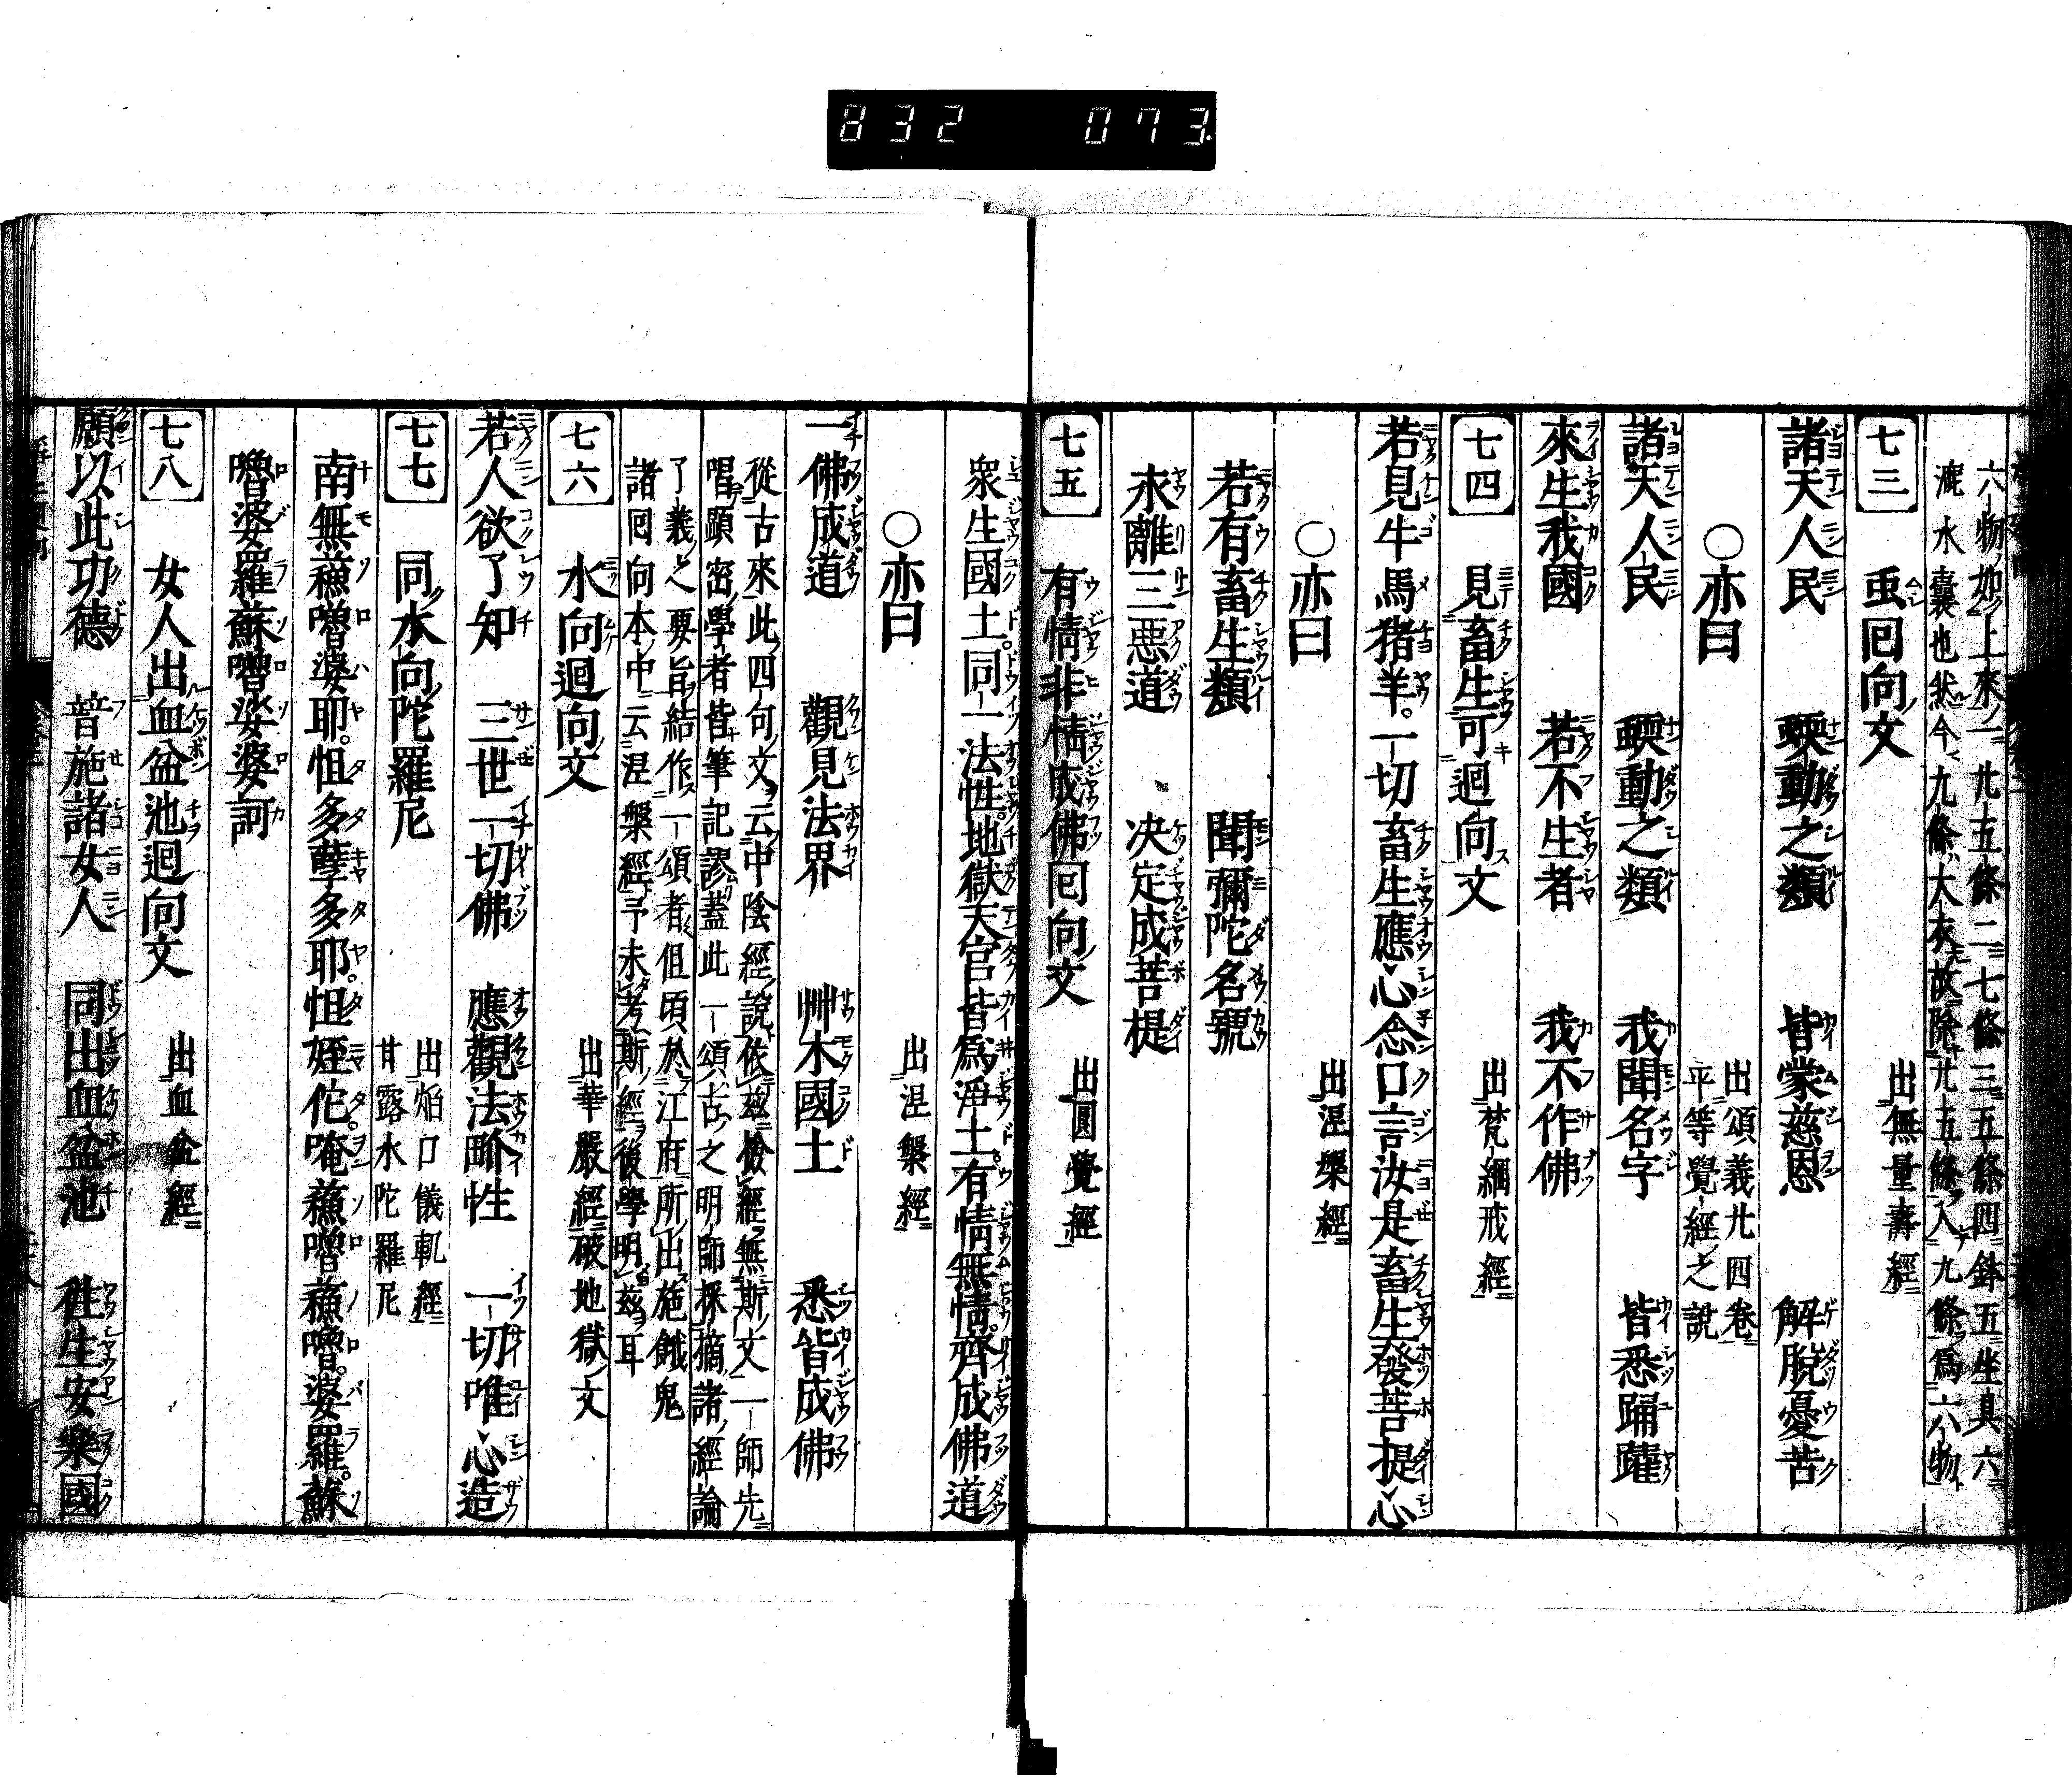 832 073
六物如上來一九五條二七條三五條四鉢五坐具六
漉水囊也然今九條大衣故除廿五條入九條爲六物
七三 虫囘向文 出無量壽經
諸天人民 蝡動之類 皆蒙慈恩 解脫憂苦
○亦曰 出頌義廿四卷
平等覺經之說
諸天人民 蝡動之類 我聞名字 皆悉踊躍
來生我國 若不生者 我不作佛
七四 見畜生可迴向文 出梵網戒經
若見牛馬猪羊。一切畜生應心念口言汝是畜生發菩提心
○亦曰 出涅槃經
若有畜生類 聞彌陀名號
永離三惡道 決定成菩提
七五 有情非情成佛囘向文 出圓覺經
衆生國土。同一法性。地獄天宮皆爲淨土。有情無情。齊成佛道
○亦曰 出涅槃經
一佛成道 觀見法界 艸木國土 悉皆成佛
從古來此四句文云中陰經說依茲撿經無斯文一師先
唱顯密學者皆筆記謬蓋此一頌古之明師採摘諸經論
了義之要旨結作一頌者但頃於江府所出施餓鬼
諸囘向本中云涅槃經予未考斯經後學明茲耳
七六 水向迴向文 出華嚴經破地獄文
若人欲了知 三世一切佛 應觀法界性 一切唯心造
七七 同水向陀羅尼 出焰口儀軌經
甘露水陀羅尼
南無蘓嚕婆耶。怛多孽多耶。怛姪佗。唵蘓嚕蘓嚕。婆羅。蘇
嚕婆羅蘇嚕娑婆訶
七八 女人出血盆池迴向文 出血盆經
願以此功德 普施諸女人 同出血盆池 往生安樂國